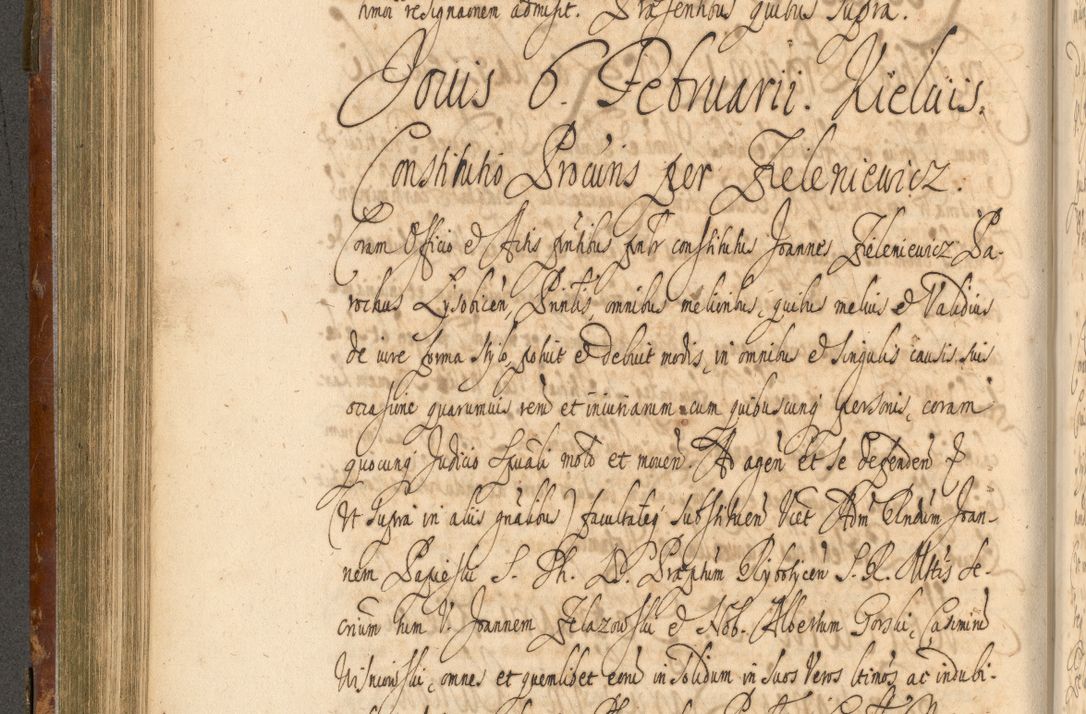 hmoi resignaonem admisit. Praesentibus quibus supra.
Jouis 6. Februarii. Kielciis.
Constitutio Procuris per Zieleniewicz.
Coram Officio et Actis pntibus pntr constitutus Joannes Zieleniewicz Pa-
rochus Lysobicen, Printis, omnibus melioribus, quibus melius et Validius
de iure forma stylo potuit et debuit modis, in omnibus et singulis causis suis
occasione quarumuis reru et iniuriarum cum quibuscunq personis, coram
quocunq Judicio Spuali moto et mouen. Ad agen et se defenden
(Ut supra in aliis gnalibus) facultateq substituen Vcet Adm Rndum Joan-
nem S. Th. D. Praeptum S. R. Mtis Se-
crium tum V. Joannem Zelazowski et Nob. Albertum Gorski, Casimiru
Wisniowski, omnes et quemlibet eoru in solidum in suos Veros ltimos ac indubi-